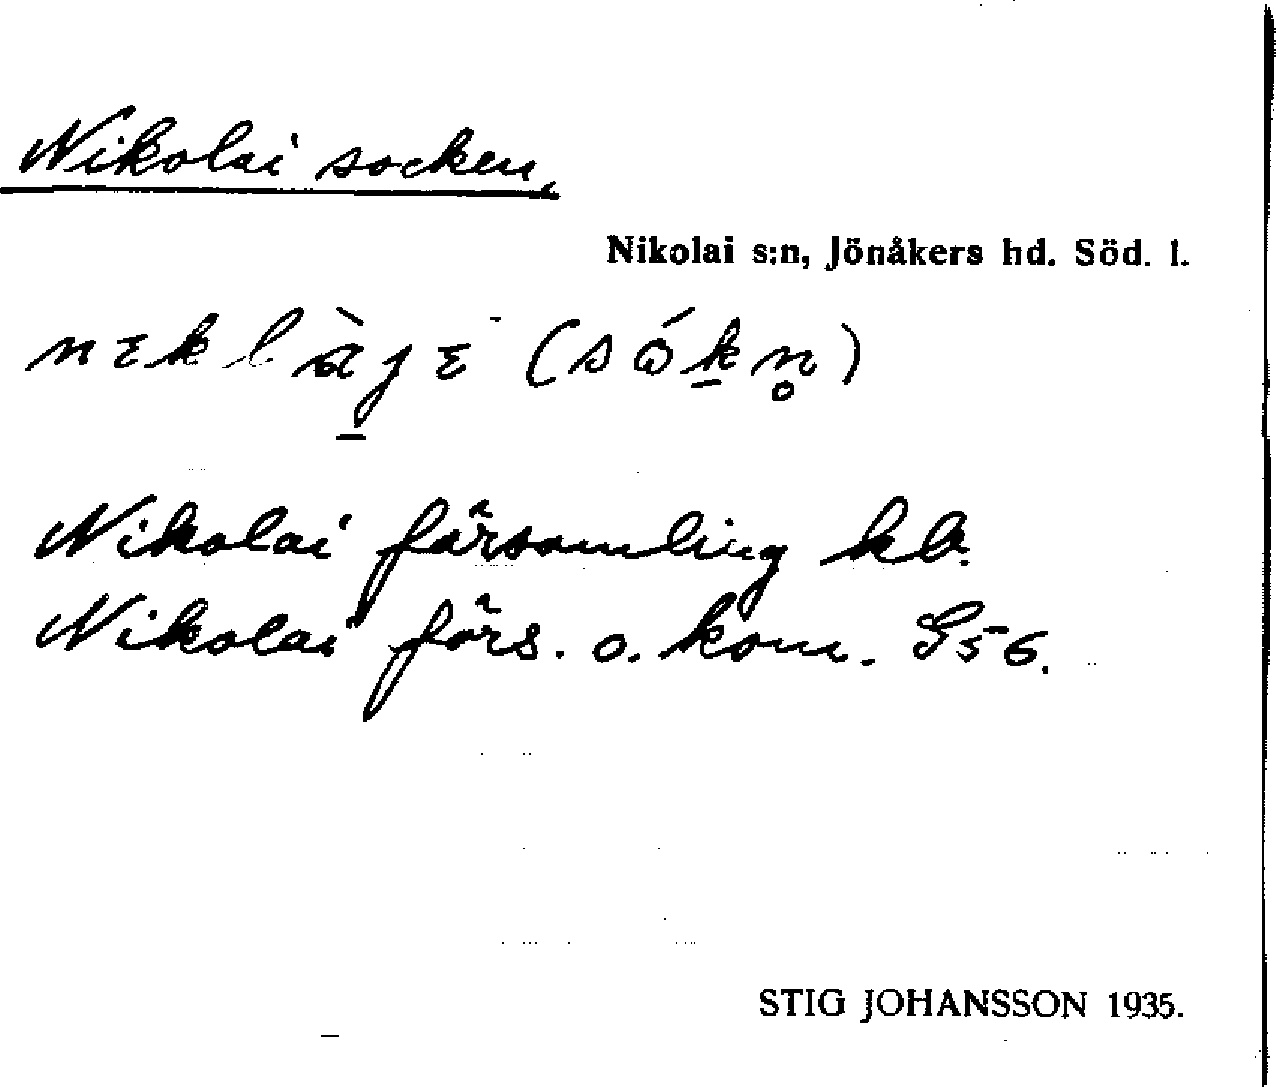 Nikolai socken.
Nikolai s:n, Jönåkers hd. Söd. l.
nɛklàjɛ (sókn̥)
Nikolai församling kb.
Nikolai förs. o. kom. G56.
STIG JOHANSSON 1935.